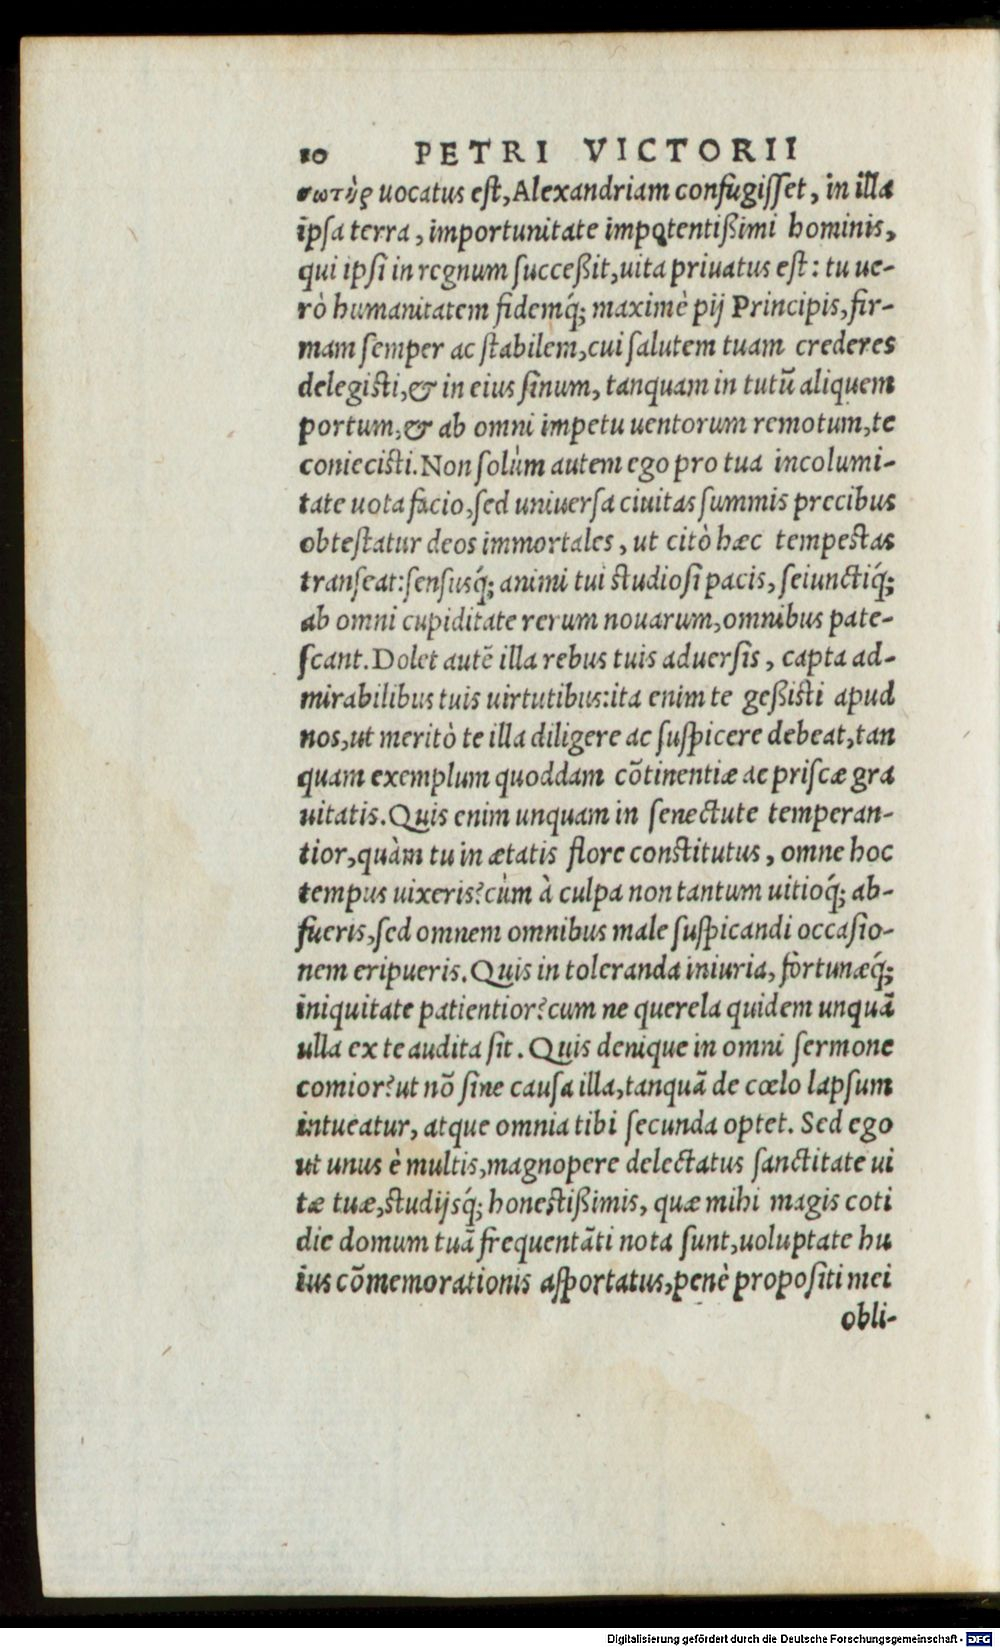 10 PETRI VICTORII
σωτὴρ uocatus est, Alexandriam confugisset, in illa
ipsa terra, importunitate impotentißimi hominis,
qui ipsi in regnum successit, uita priuatus est: tu ue-
rò humanitatem fidemq́; maximè pij Principis, fir-
mam semper ac stabilem, cui salutem tuam crederes
delegisti, & in eius sinum, tanquam in tutũ aliquem
portum, & ab omni impetu uentorum remotum, te
coniecisti. Non solùm autem ego pro tua incolumi-
tate uota facio, sed uniuersa ciuitas summis precibus
obtestatur deos immortales, ut citò hæc tempestas
transeat: sensusq́; animi tui studiosi pacis, seiunctiq́;
ab omni cupiditate rerum nouarum, omnibus pate-
scant. Dolet autẽ illa rebus tuis aduersis, capta ad-
mirabilibus tuis uirtutibus: ita enim te geßisti apud
nos, ut meritò te illa diligere ac suspicere debeat, tan
quam exemplum quoddam cõtinentiæ ac priscæ gra
uitatis. Quis enim unquam in senectute temperan-
tior, quàm tu in ætatis flore constitutus, omne hoc
tempus uixeris? cùm à culpa non tantum uitioq́; ab-
fueris, sed omnem omnibus male suspicandi occasio-
nem eripueris. Quis in toleranda iniuria, fortunæq́;
iniquitate patientior? cum ne querela quidem unquã
ulla ex te audita sit. Quis denique in omni sermone
comior? ut nõ sine causa illa, tanquã de cœlo lapsum
intueatur, atque omnia tibi secunda optet. Sed ego
ut unus è multis, magnopere delectatus sanctitate ui
tæ tuæ, studijsq́; honestißimis, quæ mihi magis coti
die domum tuã frequentãti nota sunt, uoluptate hu
ius cõmemorationis asportatus, penè propositi mei
obli-
Digitalisierung gefördert durch die Deutsche Forschungsgemeinschaft - DFG